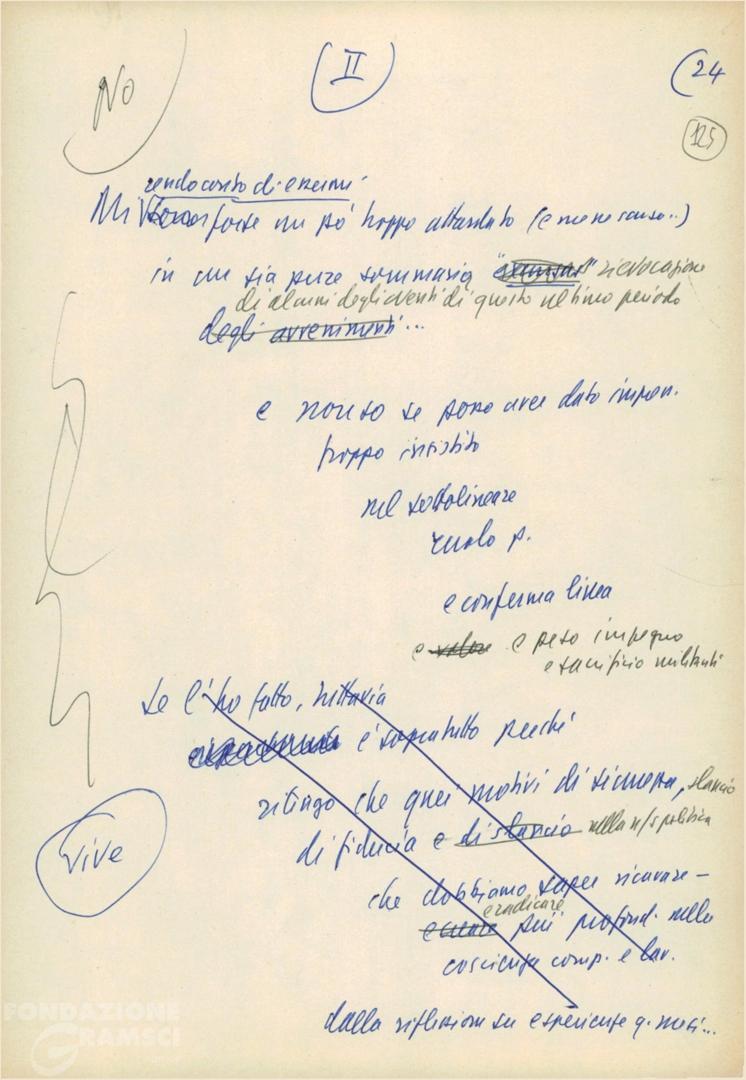 No
II
24
125
rendo conto di essermi
Mi forse un po' troppo attardato (e me ne scuso..)
in una sia pure sommaria rievocazione
di alcuni degli eventi di questo ultimo periodo
degli avvenimenti...
e non so se posso aver dato impon.
troppo insistito
nel sottolineare
ruolo p.
e conferma linea
e valore e peso impegno
e sacrificio militanti
Se l'ho fatto, tuttavia
è sopratutto perché
ritengo che quei motivi di sicurezza, slancio
di fiducia e di slancio nella n/s politica
che dobbiamo saper ricavare –
e radicare
e creare più profond. nella
coscienza comp. e lav.
vive
dalla riflessione su esperienze q. mesi...
FONDAZIONE
GRAMSCI